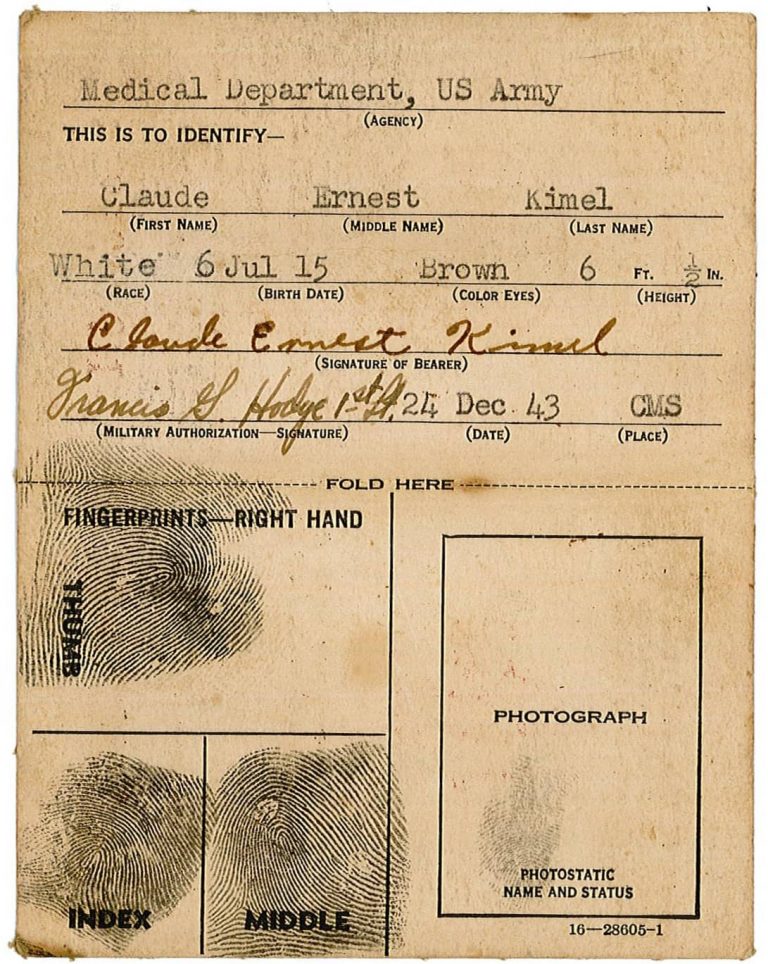 Medical Department, US Army
(AGENCY)
THIS IS TO IDENTIFY—
Claude Ernest Kimel
(FIRST NAME) (MIDDLE NAME) (LAST NAME)
White 6 Jul 15 Brown 6 FT. ½ IN.
(RACE) (BIRTH DATE) (COLOR EYES) (HEIGHT)
Claude Ernest Kimel
(SIGNATURE OF BEARER)
Francis G. Hodge 1st Lt. 24 Dec 43 CMS
(MILITARY AUTHORIZATION—SIGNATURE) (DATE) (PLACE)
FOLD HERE
FINGERPRINTS—RIGHT HAND
THUMB
PHOTOGRAPH
PHOTOSTATIC
NAME AND STATUS
INDEX MIDDLE
16—28605-1